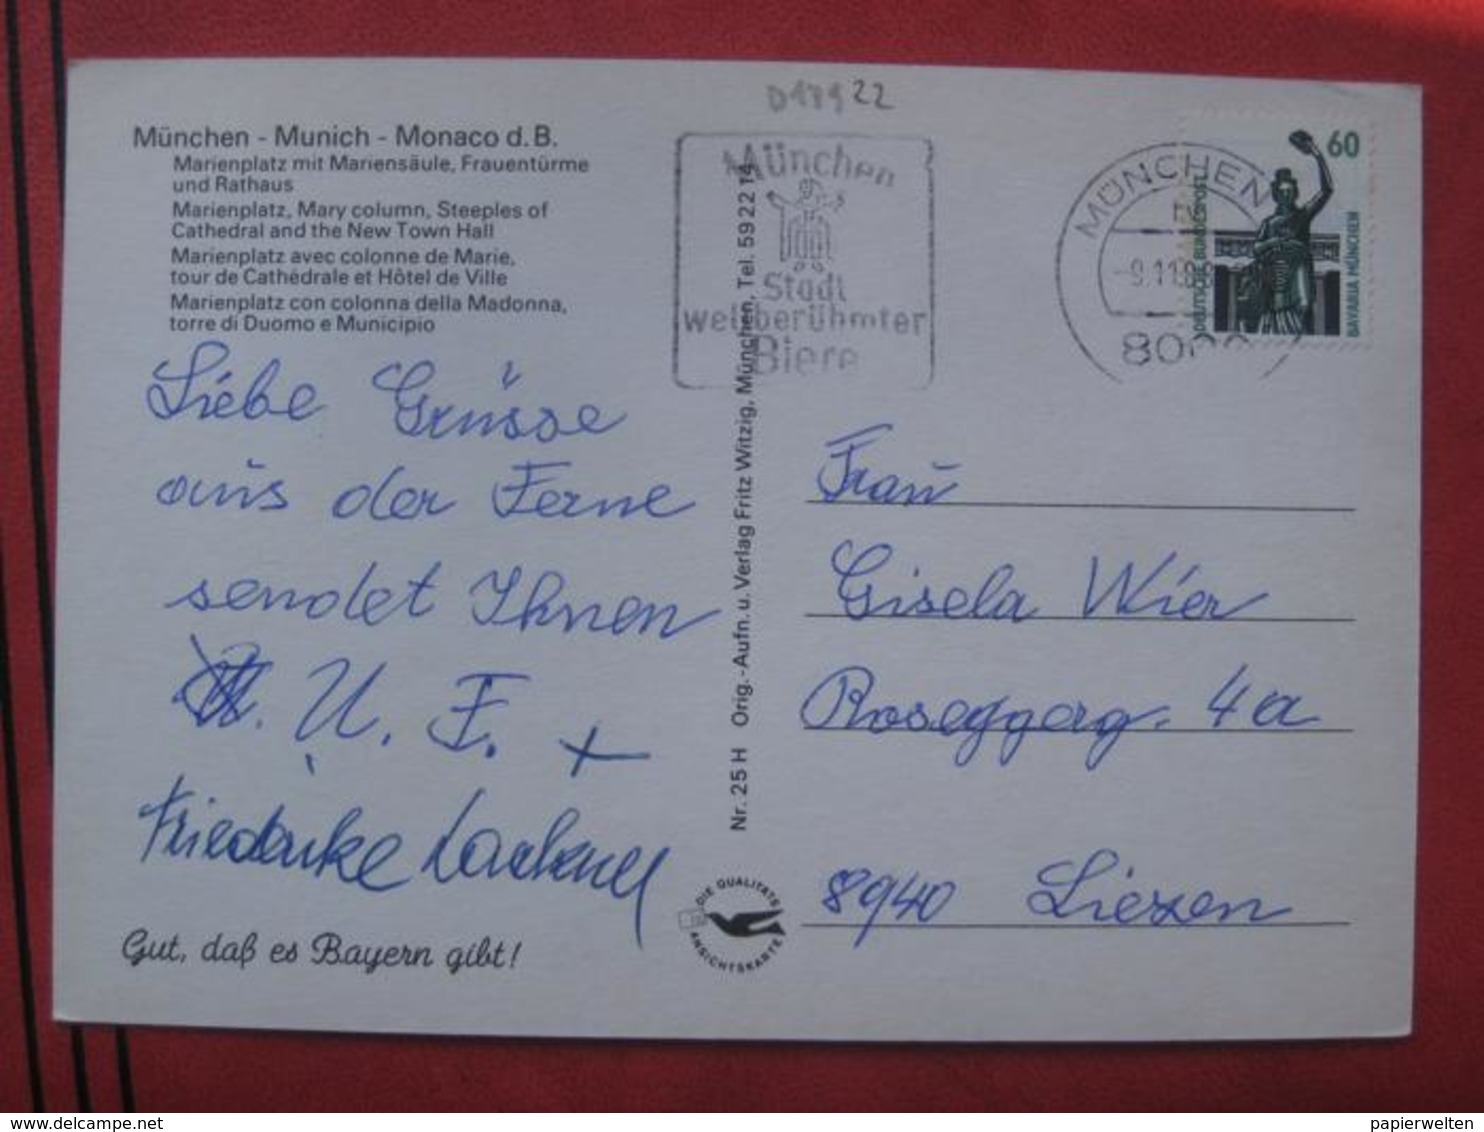 D18922
München - Munich - Monaco d. B.
Marienplatz mit Mariensäule, Frauentürme
und Rathaus
Marienplatz, Mary column, Steeples of
Cathedral and the New Town Hall
Marienplatz avec colonne de Marie,
tour de Cathédrale et Hôtel de Ville
Marienplatz con colonna della Madonna,
torre di Duomo e Municipio
Liebe Grüsse
aus der Ferne
sendet Ihnen
U. F. +
Friederike Lackner
Gut, daß es Bayern gibt!
München
Stadt
weltberühmter
Biere
Nr. 25 H Orig.-Aufn. u. Verlag Fritz Witzig, München, Tel. 59 22 14
DIE QUALITÄTS
ANSICHTSKARTE
MÜNCHEN
-9.11.88
8000
60
DEUTSCHE BUNDESPOST
BAVARIA MÜNCHEN
Frau
Gisela Wier
Roseggerg. 4a
8940 Liezen
delcampe.net
papierwelten